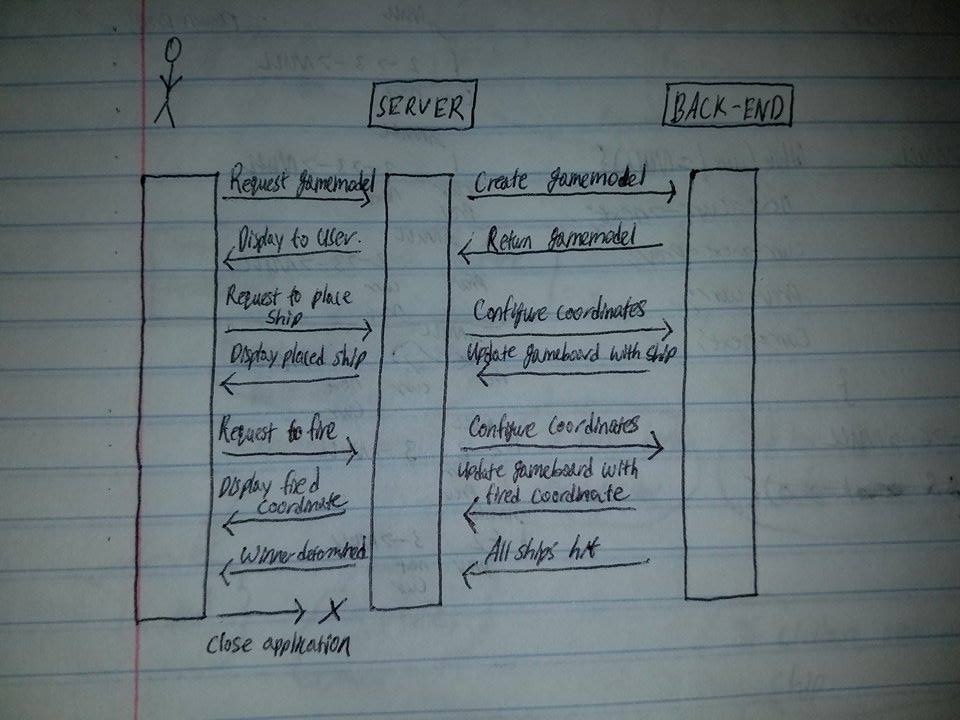 SERVER
BACK-END
Request gamemodel
Create gamemodel
Display to user.
Return gamemodel
Request to place
ship
Configure coordinates
Display placed ship
Update gameboard with ship
Request to fire
Configure coordinates
Display fired
coordinate
Update gameboard with
fired coordinate
Winner
All ships hit
Close application